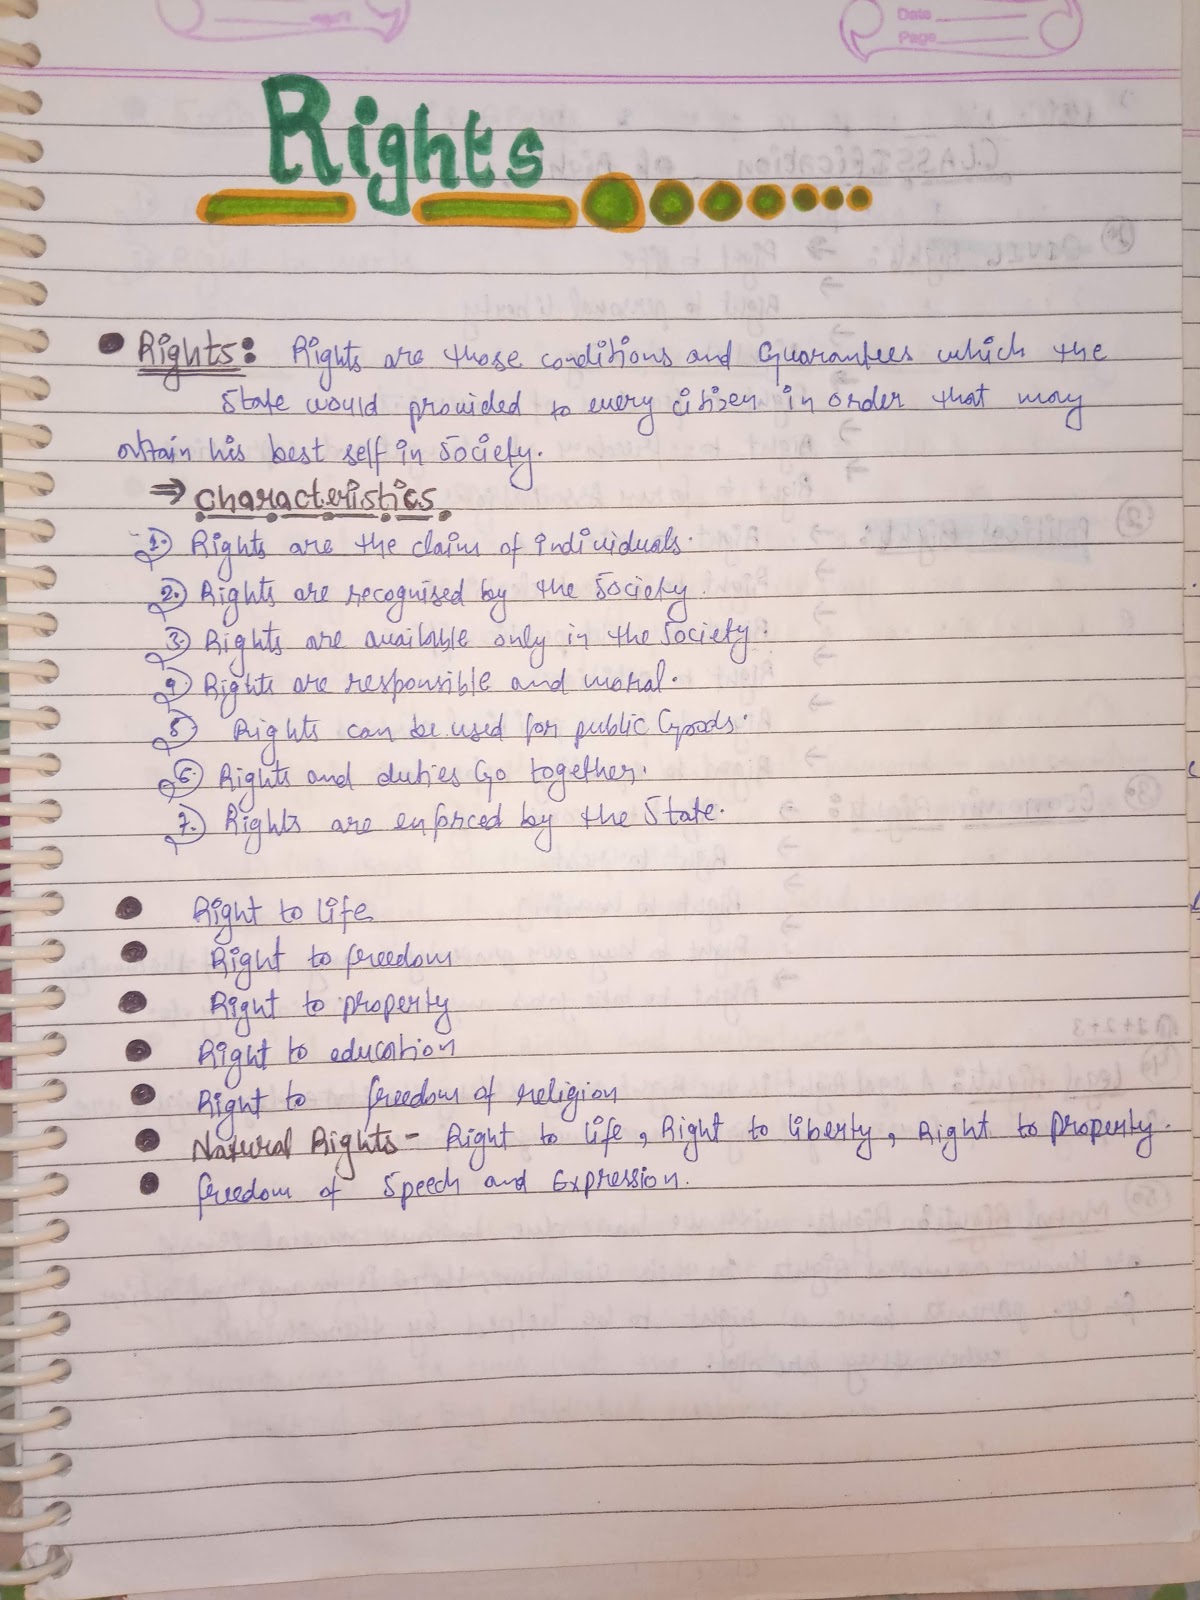 Date
Page
Rights
Rights: Rights are those conditions and Guarantees which the
State would provided to every citizen in order that may
obtain his best self in Society.
⇒ Characteristics.
1. Rights are the claim of individuals.
2. Rights are recognised by the Society.
3. Rights are available only in the Society.
4. Rights are responsible and moral.
5. Rights can be used for public Goods.
6. Rights and duties Go together.
7. Rights are enforced by the State.
● Right to life
● Right to freedom
● Right to property
● Right to education
● Right to freedom of religion
● Natural Rights - Right to life, Right to liberty, Right to property.
● freedom of Speech and Expression.